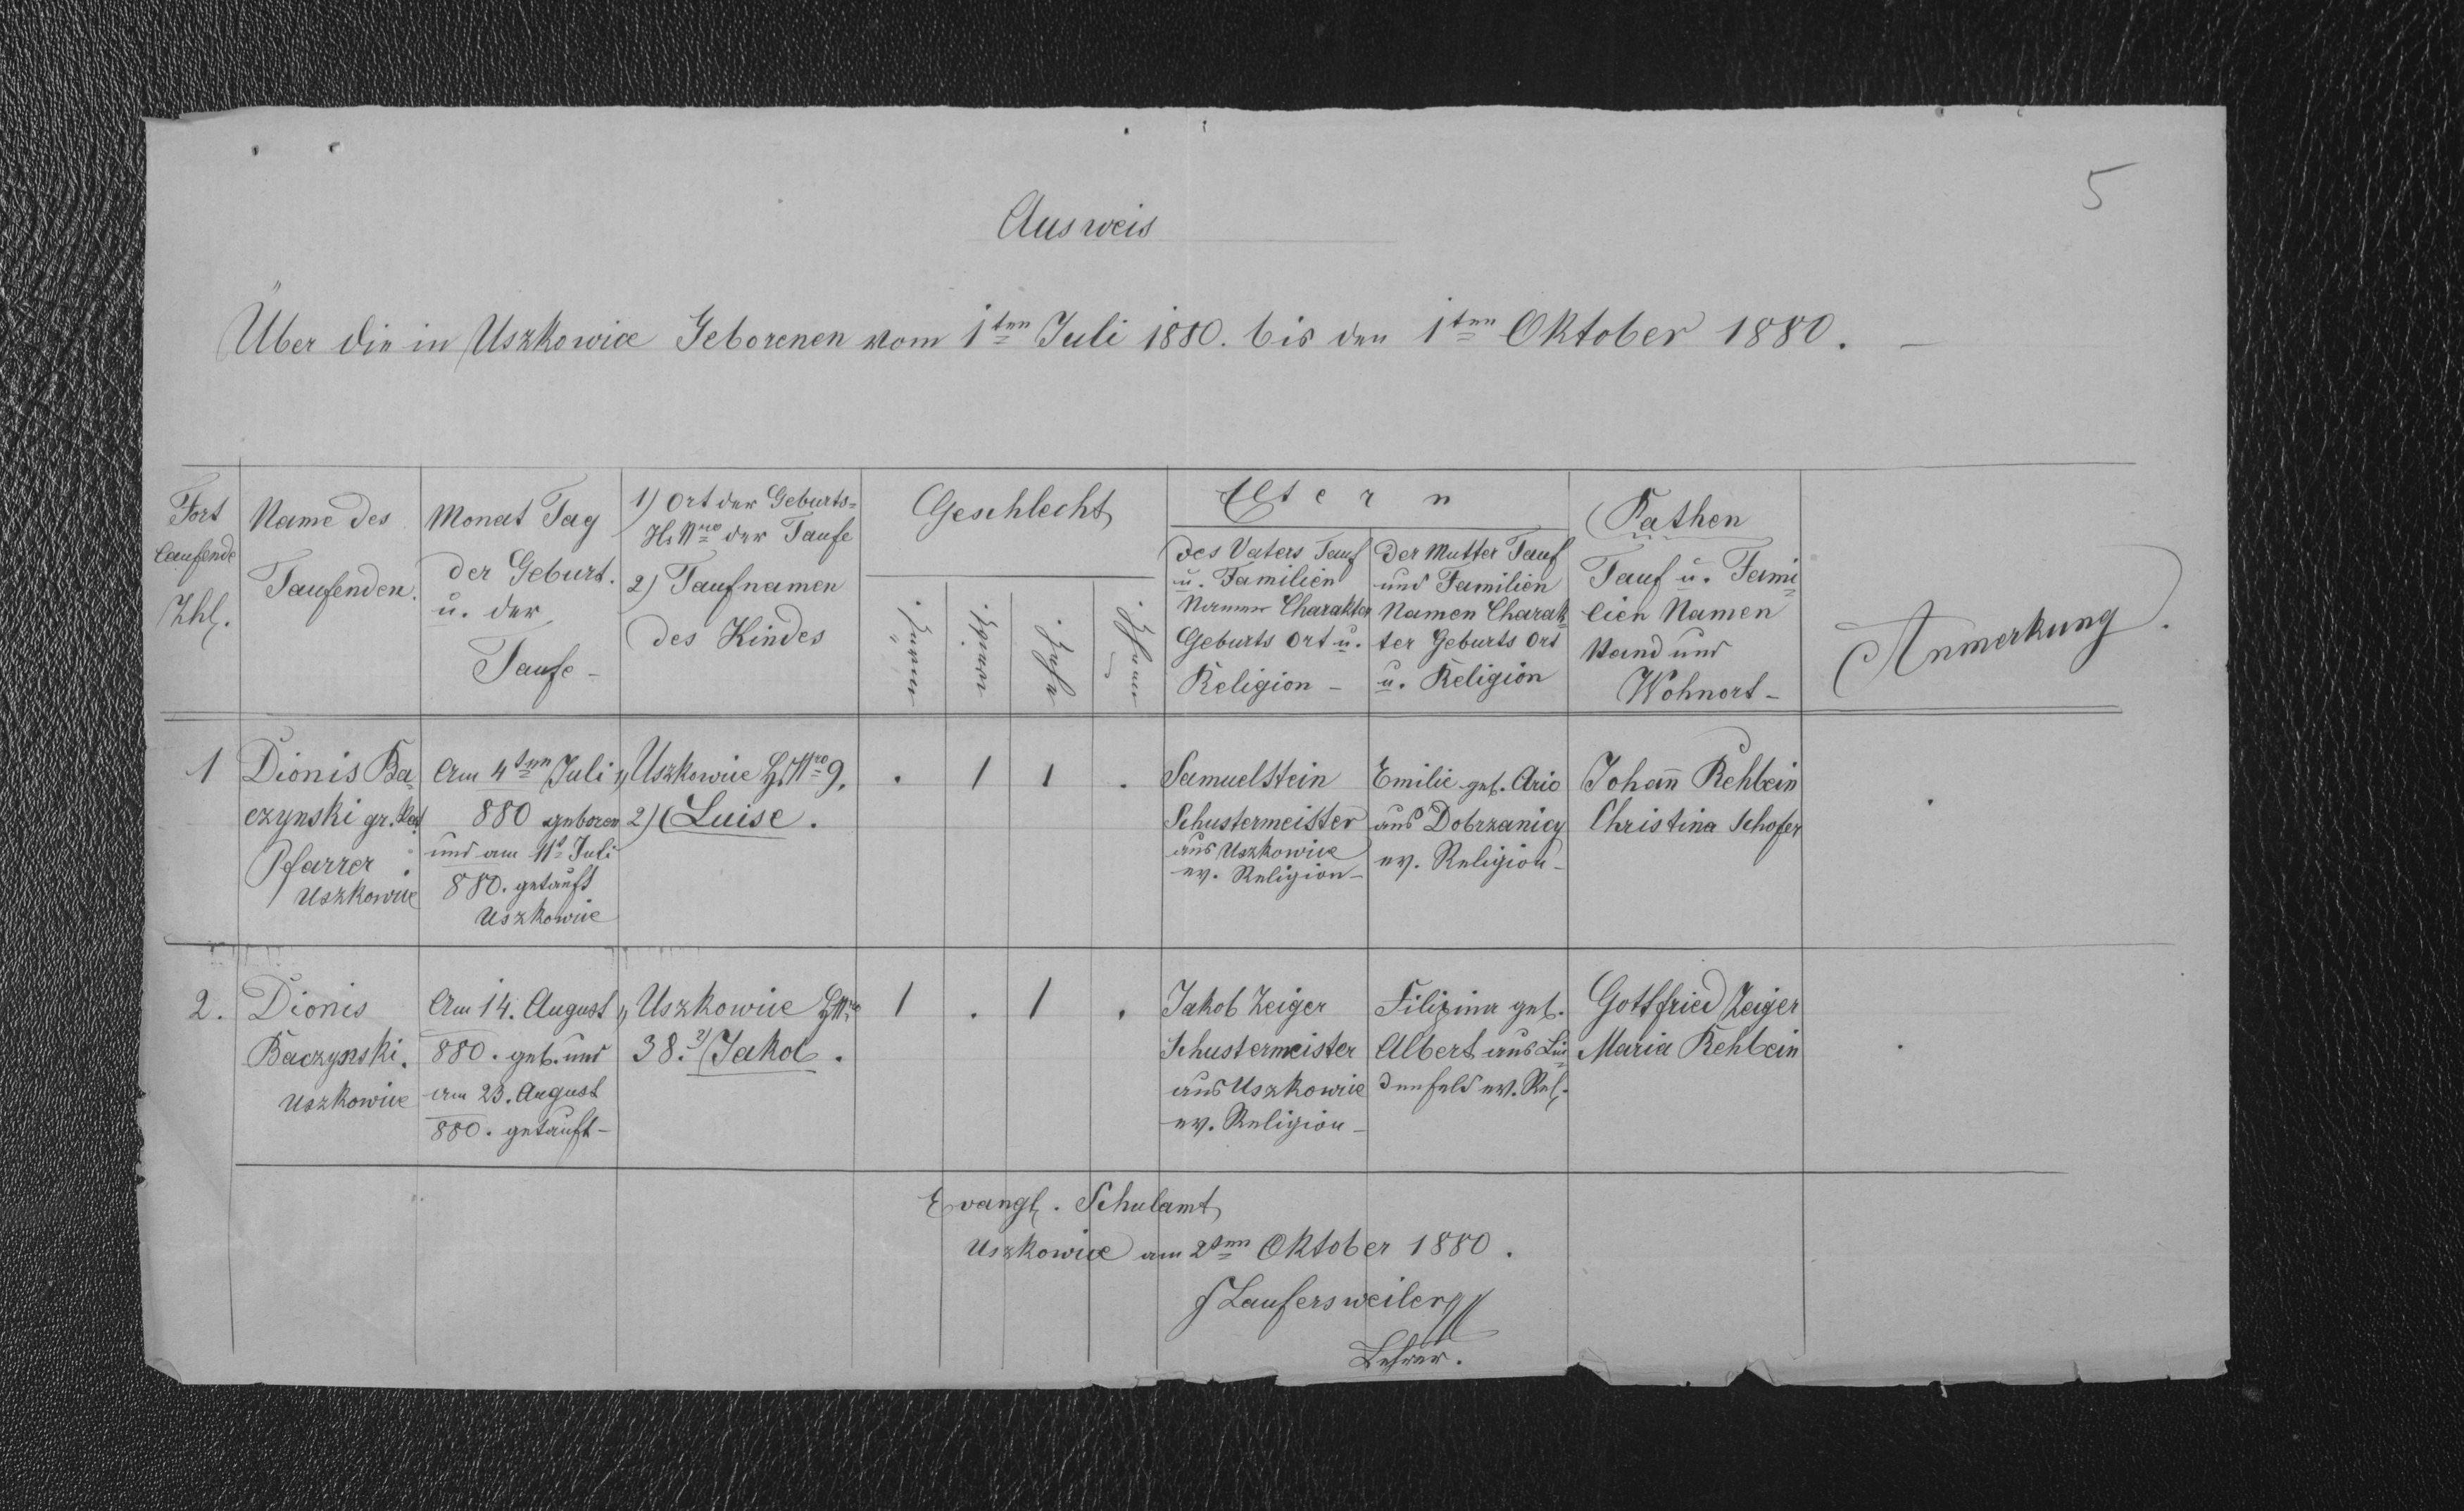 5
Ausweis
Über die in Uszkowice Geborenen vom 1ten Juli 1880. bis den 1ten Oktober 1880. –
Fort
laufende
Zhl.
Name des
Taufenden.
Monat Tag
der Geburt.
u. der
Taufe –
1) Ort der Geburts=
Hs Nro der Taufe
2) Taufnamen
des Kindes
Geschlecht
Eltern
des Vaters Tauf
u. Familien
Namen Charakter
Geburts Ort u.
Religion –
Der Mutter Tauf
und Familien
Namen Charak=
ter Geburts Ort
u. Religion
Pathen
Tauf u. Fami=
lien Namen
Stand und
Wohnort –
Anmerkung.
1
Dionis Ba=
czynski gr. Kat
Pfarrer
Uszkowice
Am 4ten Juli
880 geboren
und am 11t Juli
880. getauft
Uszkowice
1) Uszkowice H Nro 9.
2) Luise.
. 1 1 .
Samuel Stein
Schustermeister
aus Uszkowice
ev. Religion –
Emilie geb. Ario
aus Dobrzanicy
ev. Religion –
Johan̄ Rehbein
Christina Schofer
.
2.
Dionis
Baczynski.
Uszkowice
Am 14. August
880. geb. und
am 23. August
880. getauft –
1) Uszkowice H Nro
38. 2) Jakob.
1 . 1 .
Jakob Zeiger
Schustermeister
aus Uszkowice
ev. Religion –
Filipina geb.
Albert aus Lin=
denfeld ev. Rel.
Gottfried Zeiger
Maria Rehbein
.
Evangl. Schulamt
Uszkowice am 2ten Oktober 1880.
J Laufersweiler
Lehrer.